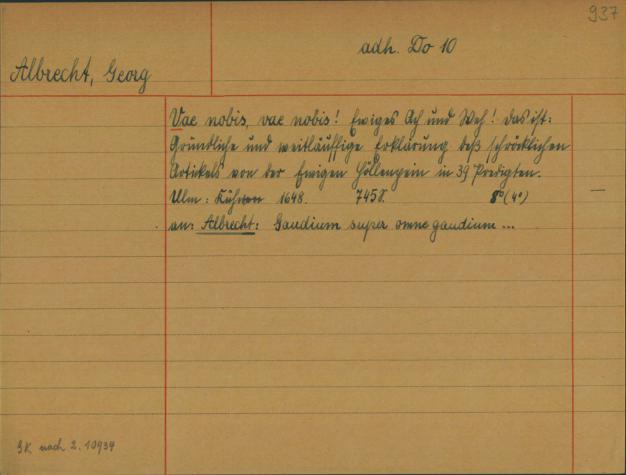 937
adh. Do 10
Albrecht, Georg
Vae nobis, vae nobis! Ewiges Ach und Weh! das ist:
Gründliche und weitläuffige Erklärung deß schröcklichen
Artikels von der Ewigen Höllenpein in 39 Predigten.
Ulm: Kühnen 1648. 745 S. 8° (4°)
an: Albrecht: Gaudium super omne gaudium ...
nach 2.10934